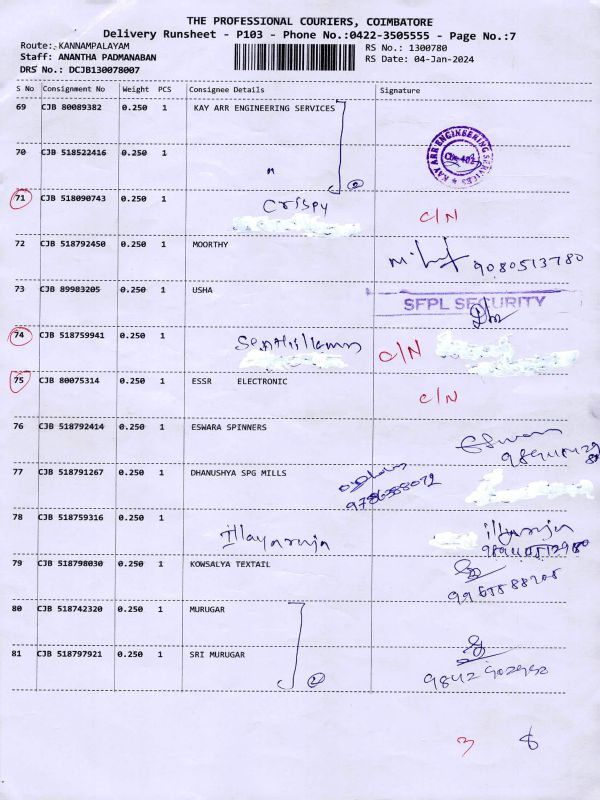 THE PROFESSIONAL COURIERS, COIMBATORE
Delivery Runsheet - P103 - Phone No.:0422-3505555 - Page No.:7
Route: KANNAMPALAYAM RS No.: 1300780
Staff: ANANTHA PADMANABAN RS Date: 04-Jan-2024
DRS No.: DCJB130078007
S No Consignment No Weight PCS Consignee Details Signature
69 CJB 80089382 0.250 1 KAY ARR ENGINEERING SERVICES
70 CJB 518522416 0.250 1 "
KAY ARR ENGINEERING SERVICES
2
71 CJB 518090743 0.250 1 Crispy C/N
72 CJB 518792450 0.250 1 MOORTHY 9080513780
73 CJB 89983205 0.250 1 USHA
SFPL SECURITY
74 CJB 518759941 0.250 1 C/N
75 CJB 80075314 0.250 1 ESSR ELECTRONIC C/N
76 CJB 518792414 0.250 1 ESWARA SPINNERS
77 CJB 518791267 0.250 1 DHANUSHYA SPG MILLS
78 CJB 518759316 0.250 1 Illayaraja
79 CJB 518798030 0.250 1 KOWSALYA TEXTAIL
80 CJB 518742320 0.250 1 MURUGAR
81 CJB 518797921 0.250 1 SRI MURUGAR
2
3 8